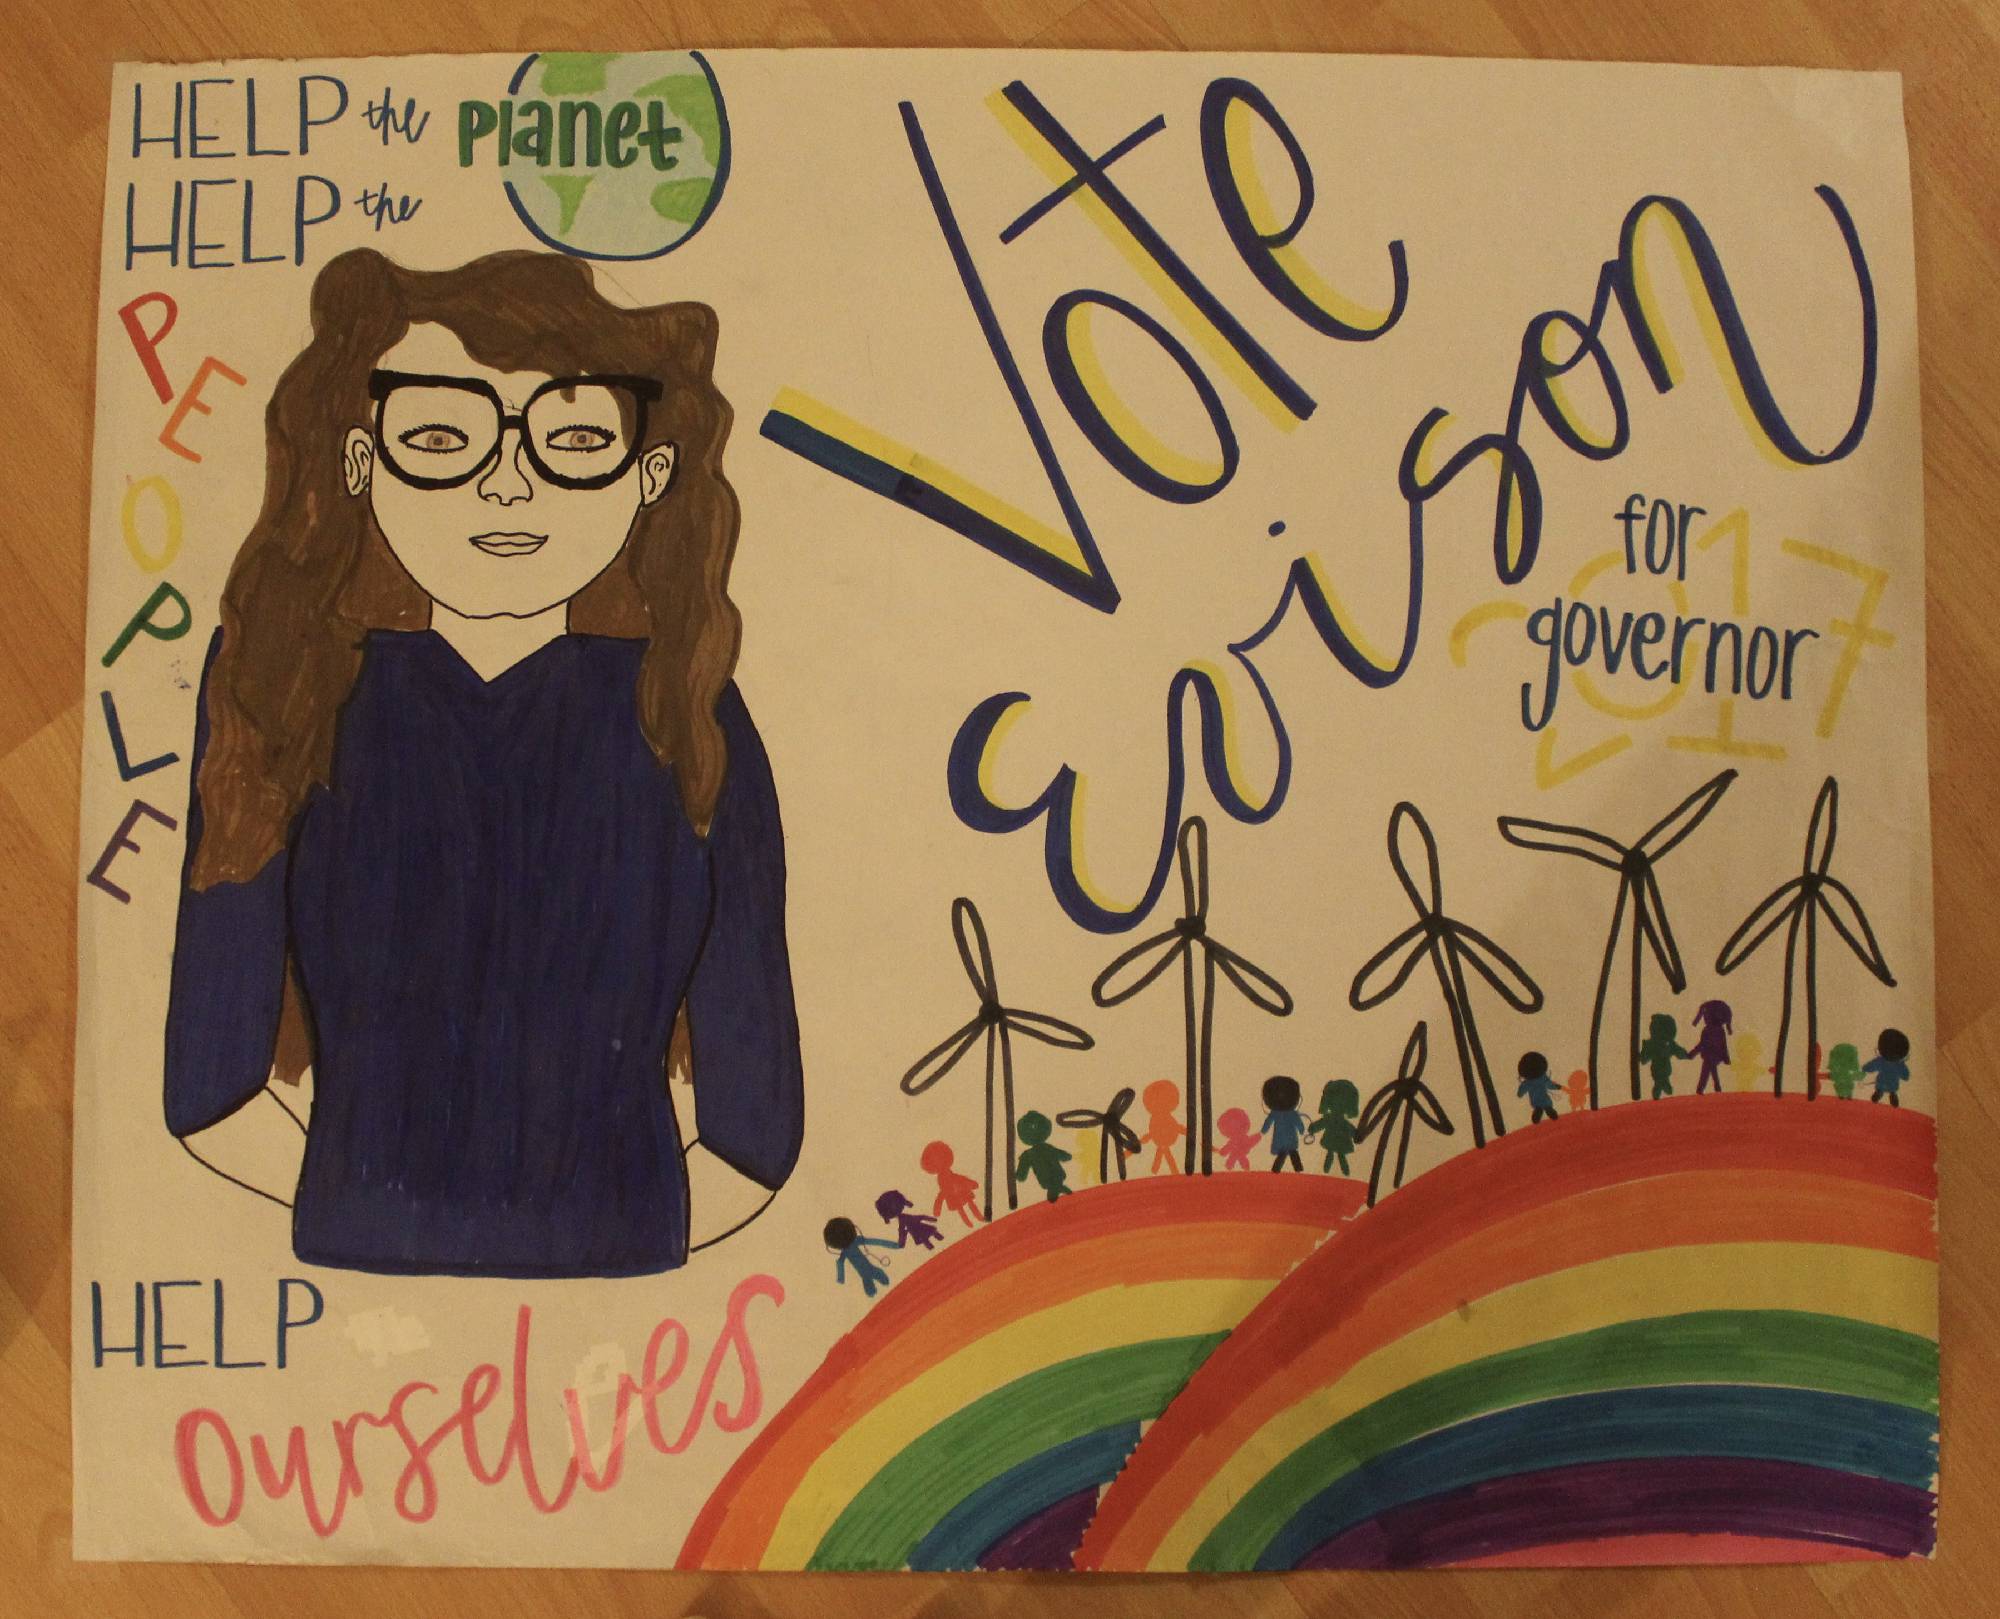 HELP the planet
HELP the
PEOPLE
HELP
ourselves
Vote
Erison
for
governor
2017